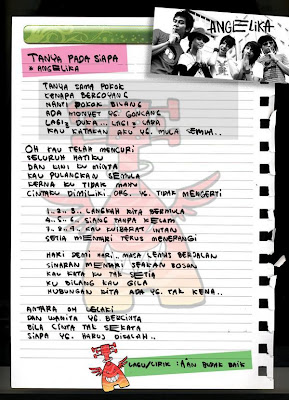 ANGELIKA
TANYA PADA SIAPA
* ANGELIKA
TANYA SAMA POKOK
KENAPA BERGOYANG
NANTI POKOK BILANG
ADA MONYET YG. GONCANG
LAGI2 DUKA... LAGI2 LARA
KAU KATAKAN AKU YG. MULA SEMUA..
OH KAU TELAH MENCURI
SELURUH HATIKU
DAN KINI KU MINTA
KAU PULANGKAN SEMULA
KERNA KU TIDAK MAHU
CINTAKU DIMILIKI ORG. YG. TIDAK MENGERTI
1.. 2.. 3.. LANGKAH KITA BERMULA
4.. 5.. 6.. SIANG TANPA KELAM
7.. 8.. 9.. KAU KUIBARAT INTAN
SETIA MENTARI TERUS MENEMANGI
HARI DEMI HARI.. MASA LEKAS BERJALAN
SINARAN MENTARI SEAKAN BOSAN
KAU KATA KU TAK SETIA
KU BILANG KAU GILA
HUBUNGAN KITA ADA YG. TAK KENA..
ANTARA OH LELAKI
DAN WANITA YG. BERCINTA
BILA CINTA TAK SEKATA
SIAPA YG. HARUS DISALAH..
LAGU/LIRIK : A'AN BUDAK BAIK